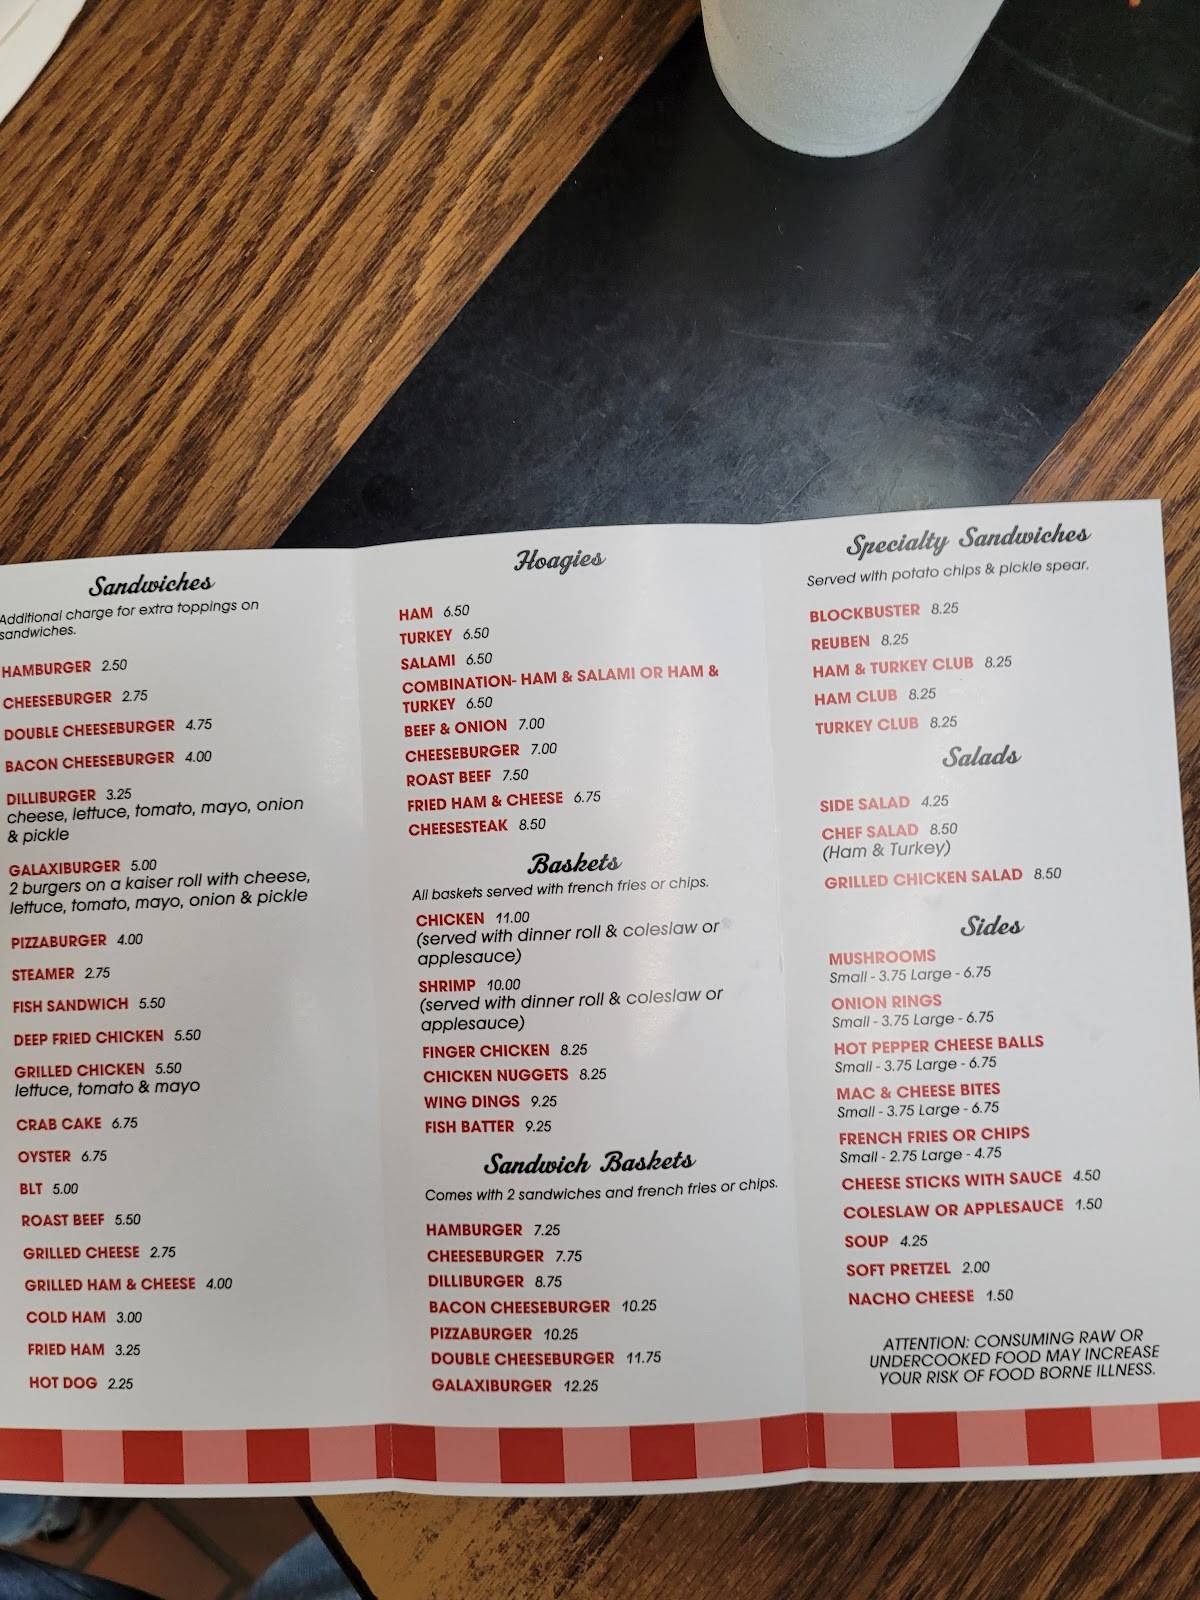 Sandwiches
Additional charge for extra toppings on
sandwiches.
HAMBURGER 2.50
CHEESEBURGER 2.75
DOUBLE CHEESEBURGER 4.75
BACON CHEESEBURGER 4.00
DILLIBURGER 3.25
cheese, lettuce, tomato, mayo, onion
& pickle
GALAXIBURGER 5.00
2 burgers on a kaiser roll with cheese,
lettuce, tomato, mayo, onion & pickle
PIZZABURGER 4.00
STEAMER 2.75
FISH SANDWICH 5.50
DEEP FRIED CHICKEN 5.50
GRILLED CHICKEN 5.50
lettuce, tomato & mayo
CRAB CAKE 6.75
OYSTER 6.75
BLT 5.00
ROAST BEEF 5.50
GRILLED CHEESE 2.75
GRILLED HAM & CHEESE 4.00
COLD HAM 3.00
FRIED HAM 3.25
HOT DOG 2.25
Hoagies
HAM 6.50
TURKEY 6.50
SALAMI 6.50
COMBINATION- HAM & SALAMI OR HAM &
TURKEY 6.50
BEEF & ONION 7.00
CHEESEBURGER 7.00
ROAST BEEF 7.50
FRIED HAM & CHEESE 6.75
CHEESESTEAK 8.50
Baskets
All baskets served with french fries or chips.
CHICKEN 11.00
(served with dinner roll & coleslaw or
applesauce)
SHRIMP 10.00
(served with dinner roll & coleslaw or
applesauce)
FINGER CHICKEN 8.25
CHICKEN NUGGETS 8.25
WING DINGS 9.25
FISH BATTER 9.25
Sandwich Baskets
Comes with 2 sandwiches and french fries or chips.
HAMBURGER 7.25
CHEESEBURGER 7.75
DILLIBURGER 8.75
BACON CHEESEBURGER 10.25
PIZZABURGER 10.25
DOUBLE CHEESEBURGER 11.75
GALAXIBURGER 12.25
Specialty Sandwiches
Served with potato chips & pickle spear.
BLOCKBUSTER 8.25
REUBEN 8.25
HAM & TURKEY CLUB 8.25
HAM CLUB 8.25
TURKEY CLUB 8.25
Salads
SIDE SALAD 4.25
CHEF SALAD 8.50
(Ham & Turkey)
GRILLED CHICKEN SALAD 8.50
Sides
MUSHROOMS
Small - 3.75 Large - 6.75
ONION RINGS
Small - 3.75 Large - 6.75
HOT PEPPER CHEESE BALLS
Small - 3.75 Large - 6.75
MAC & CHEESE BITES
Small - 3.75 Large - 6.75
FRENCH FRIES OR CHIPS
Small - 2.75 Large - 4.75
CHEESE STICKS WITH SAUCE 4.50
COLESLAW OR APPLESAUCE 1.50
SOUP 4.25
SOFT PRETZEL 2.00
NACHO CHEESE 1.50
ATTENTION: CONSUMING RAW OR
UNDERCOOKED FOOD MAY INCREASE
YOUR RISK OF FOOD BORNE ILLNESS.